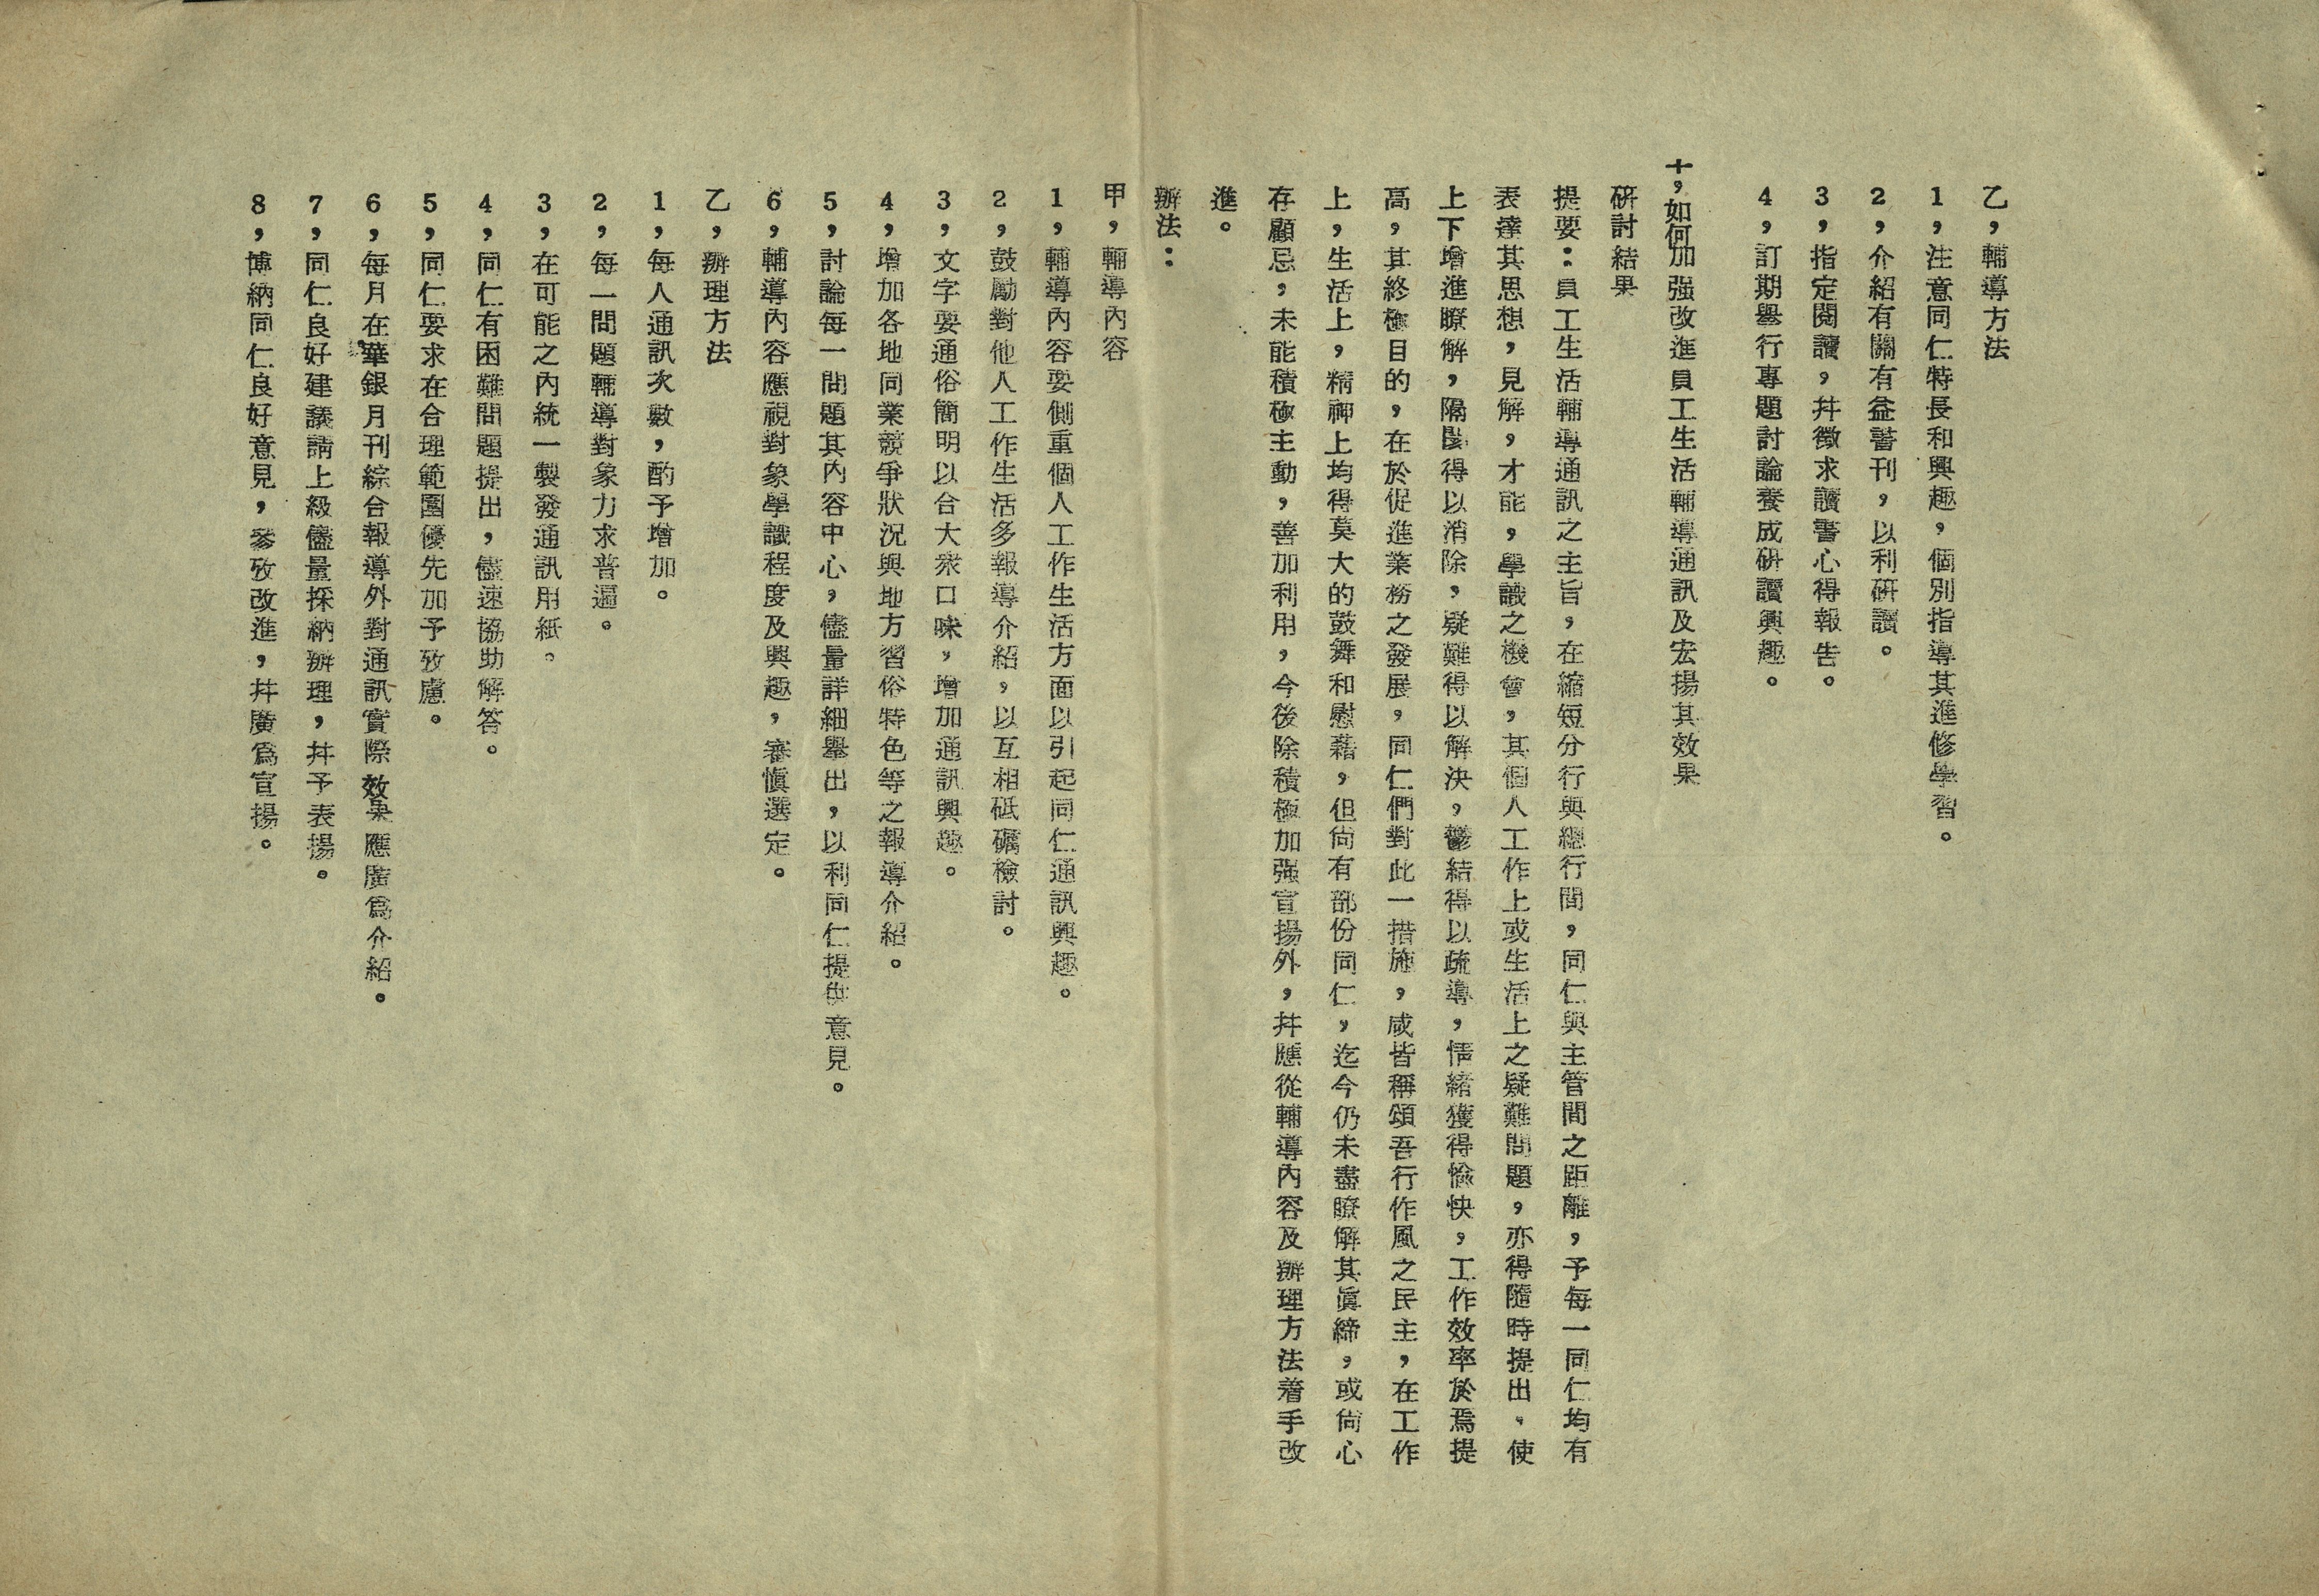 乙，輔導方法
1，注意同仁特長和興趣，個別指導其進修學習。
2，介紹有關有益書刊，以利硏讀。
3，指定閱讀，幷徵求讀書心得報告。
4，訂期舉行專題討論養成硏讀興趣。
十，如何加强改進員工生活輔導通訊及宏揚其效果
硏討結果
提要：員工生活輔導通訊之主旨，在縮短分行與總行間，同仁與主管間之距離，予每一同仁均有
表達其思想，見解，才能，學識之機會，其個人工作上或生活上之疑難問題，亦得隨時提出，使
上下增進瞭解，隔閡得以消除，疑難得以解決，鬱結得以疏導，情緒獲得愉快，工作效率於焉提
高，其終極目的，在於促進業務之發展，同仁們對此一措施，咸皆稱頌吾行作風之民主，在工作
上，生活上，精神上均得莫大的鼓舞和慰藉，但尙有部份同仁，迄今仍未盡瞭解其眞締，或尙心
存顧忌，未能積極主動，善加利用，今後除積極加强宣揚外，幷應從輔導內容及辦理方法着手改
進。
辦法：
甲，輔導內容
1，輔導內容要側重個人工作生活方面以引起同仁通訊興趣。
2，鼓勵對他人工作生活多報導介紹，以互相砥礪檢討。
3，文字要通俗簡明以合大衆口味，增加通訊興趣。
4，增加各地同業競爭狀況與地方習俗特色等之報導介紹。
5，討論每一問題其內容中心，儘量詳細舉出，以利同仁提供意見。
6，輔導內容應視對象學識程度及興趣，審愼選定。
乙，辦理方法
1，每人通訊次數，酌予增加。
2，每一問題輔導對象力求普遍。
3，在可能之內統一製發通訊用紙。
4，同仁有困難問題提出，儘速協助解答。
5，同仁要求在合理範圍優先加予攷慮。
6，每月在華銀月刊綜合報導外對通訊實際效果應廣爲介紹。
7，同仁良好建議請上級儘量採納辦理，幷予表揚。
8，博納同仁良好意見，參攷改進，幷廣爲宣揚。